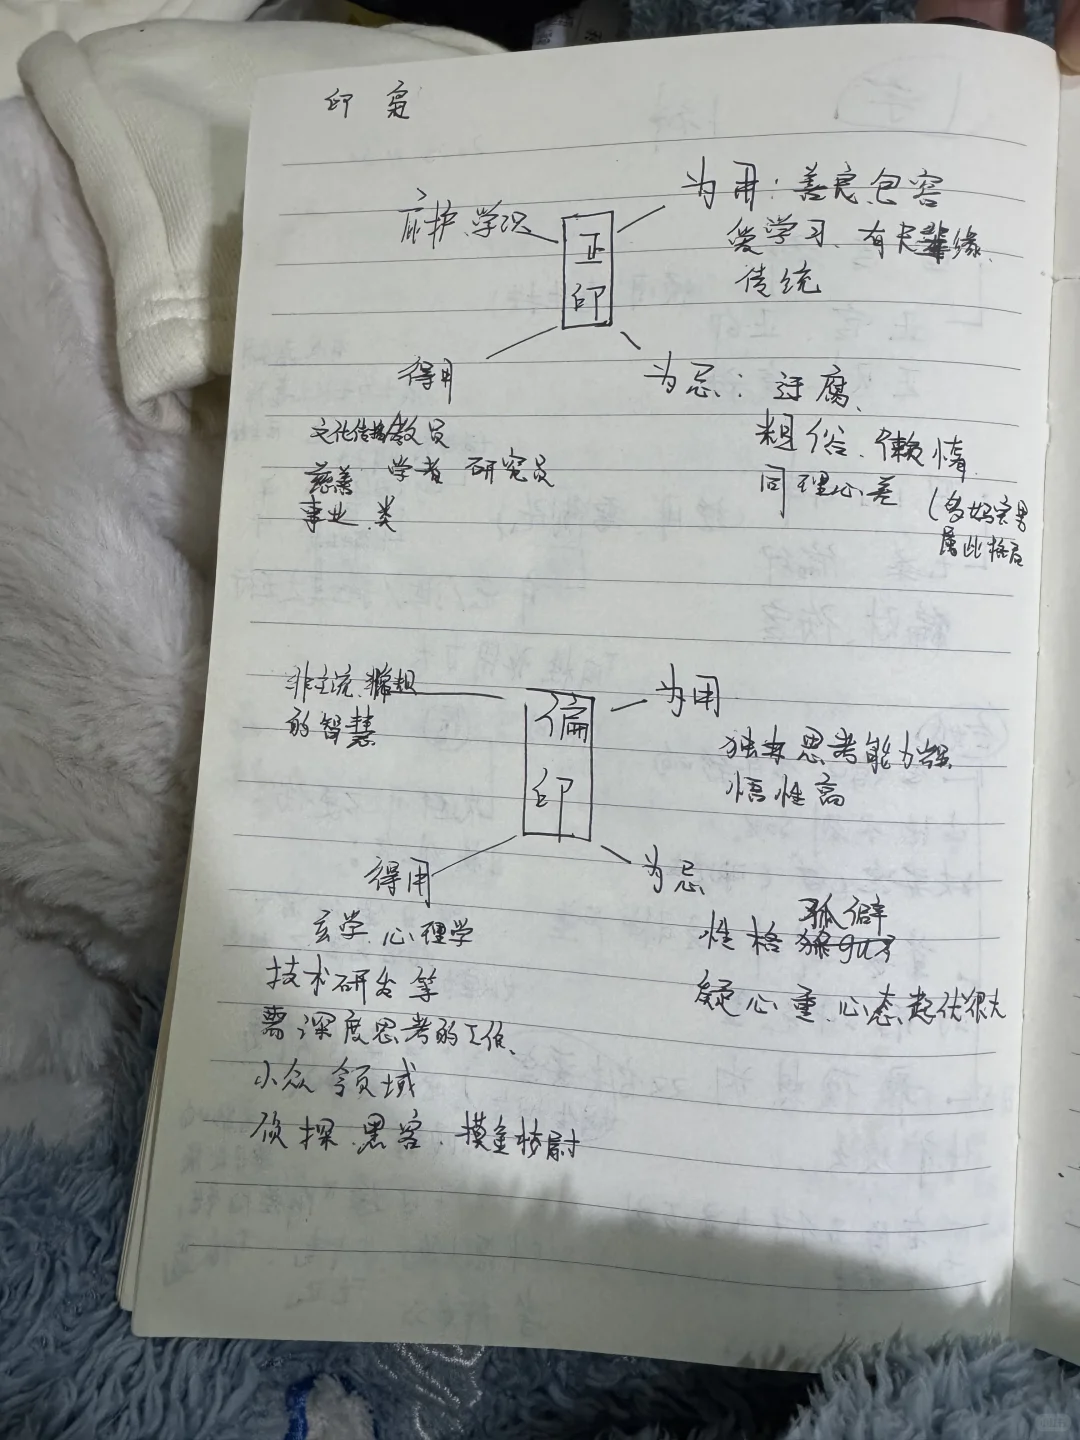 印 枭
庇护、学识
正
印
为用：善良、包容
爱学习、有长辈缘、
传统
得用
文化传播 教员
慈善 学者 研究员
事业 类
为忌：迂腐、
粗俗、懒惰
同理心差
(多妈宝男
属此格局
非主流、
的智慧
偏
印
为用
独立思考能力强
悟性高
得用
玄学 心理学
技术研发等
需深度思考的工作、
小众 领域
侦探、黑客、摸金校尉
为忌
孤僻
性格
疑心重、心态起伏很大